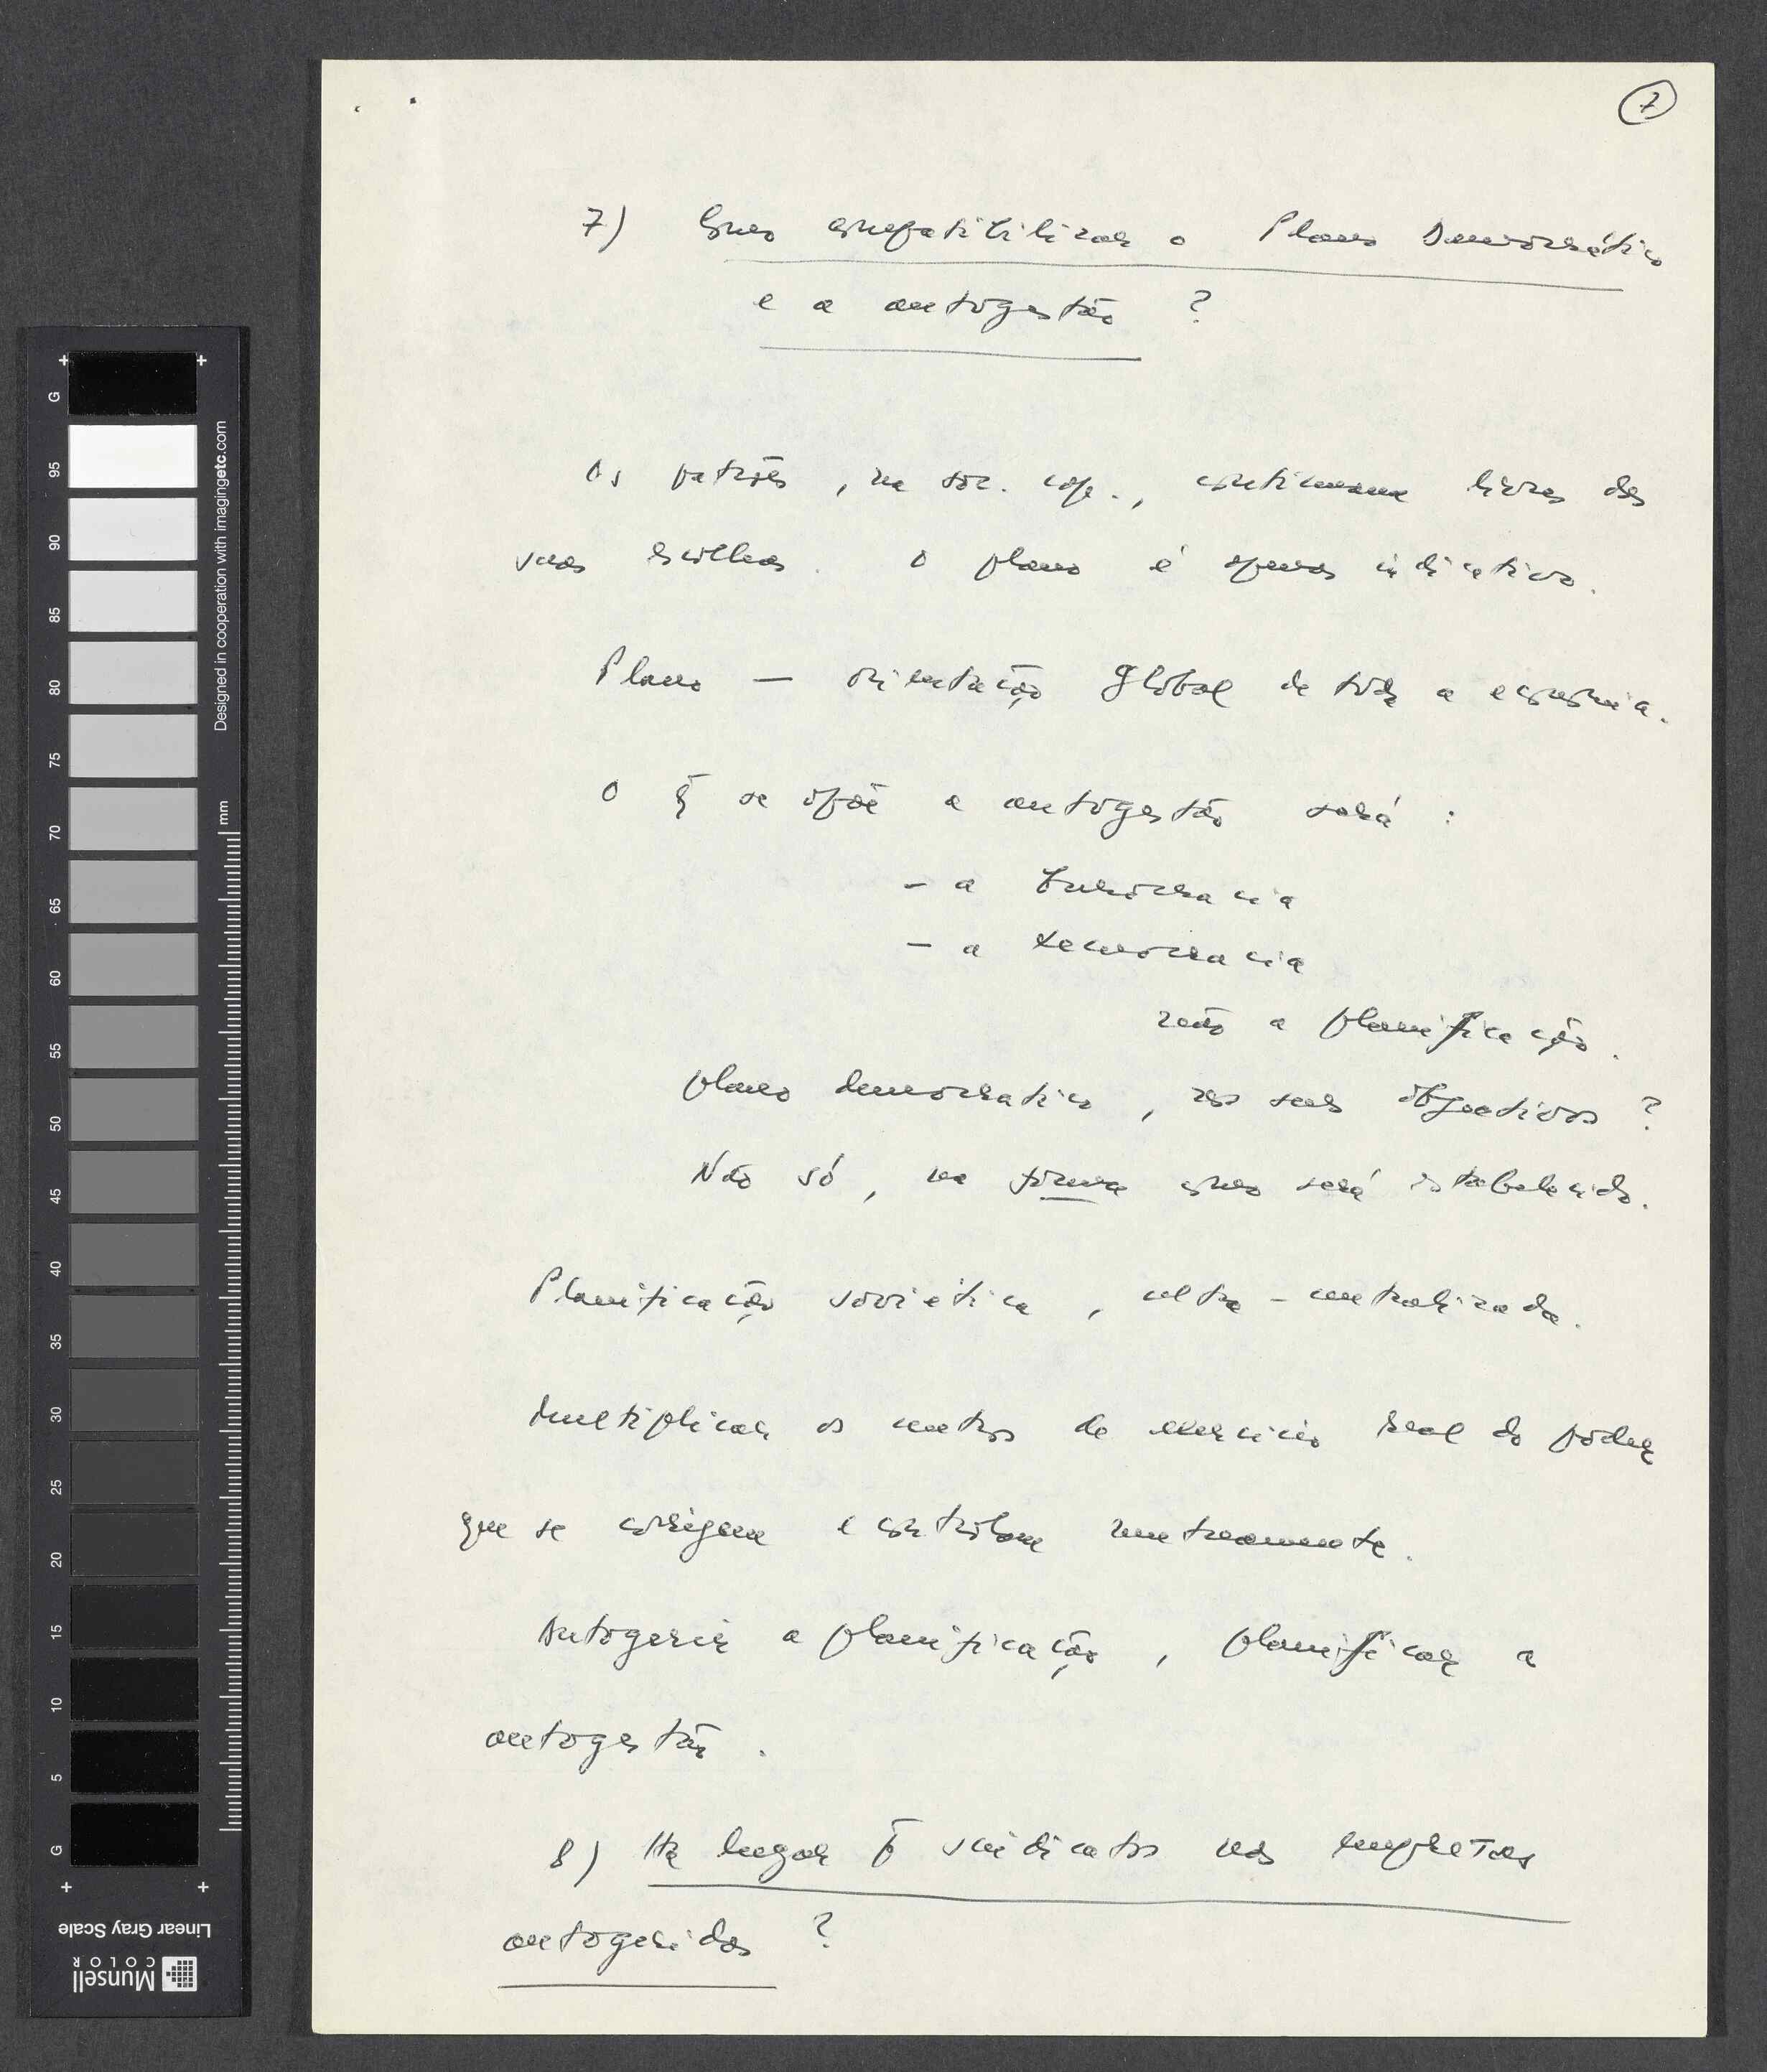 7
7) Como compatibilizar o Plano Democrático
e a autogestão ?
Os patrões, na soc. cap., continuam livres das
suas escolhas. O plano é apenas indicativo.
Plano — orientação global de toda a economia.
O q̃ se opõe a autogestão será :
- a burocracia
- a tecnocracia
não a planificação.
plano democratico, nos seus objectivos ?
Não só, na forma como será estabelecido.
Planificação soviética, ultra-centralizada.
Multiplicar os centros de exercício real do poder
que se corrigem e controlam mutuamente.
Autogerir a planificação, planificar a
autogestão.
8) Há lugar p̃ sindicatos nas empresas
autogeridas ?
G 95 90 85 80 75 70 65 60 55 50 45 40 35 30 25 20 15 10 5 G
Designed in cooperation with imagingetc.com
mm
Linear Gray Scale
Munsell
COLOR